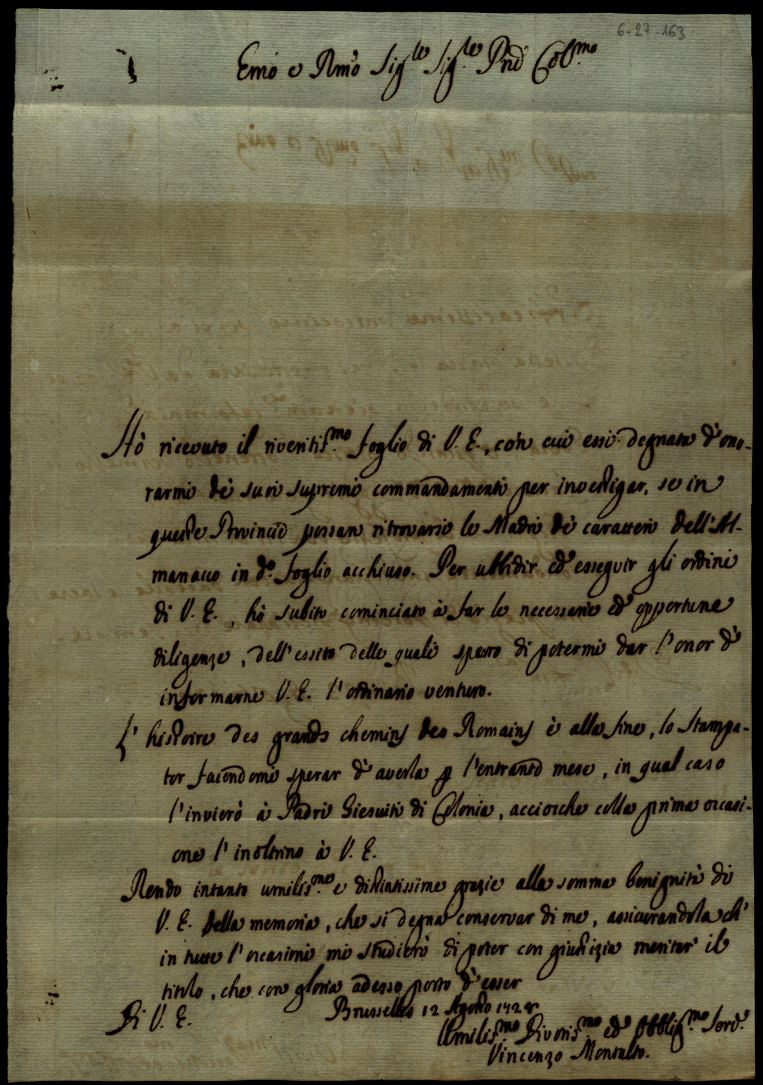 6-27-163
Emo e Rmo Sig.re Sig.re Pnē Col.mo
Hò ricevuto il riveritis.mo foglio di V. E., con cui essi degnata d'ono-
rarmi de' suoi supremi commandamenti per investigar, se in
queste Provincie possan ritrovarsi le Madri de' caratteri dell'Al-
manacco in d.o foglio acchiuso. Per ubbidir ed esseguir gli ordini
di V. E., hò subito cominciato à far le necessarie ed opportune
diligenze, dell'essito delle quali spero di potermi dar l'onor d'
informarne V. E. l'ordinario venturo.
L'histoire des grands chemins des Romains è alla fine, lo Stampa-
tor facendomi sperar d'averla p l'entrante mese, in qual caso
l'invierò à Padri Giesuiti di Colonia, acciorche colla prima occasi-
one l'inoltrino à V. E.
Rendo intanto umilis.me e distintissime grazie alla somma benignità di
V. E. della memoria, che si degna conservar di me, assicurandola ch'
in tutte l'occasioni mi studierò di poter con giustizia meritar il
titolo, che con gloria adesso porto d'esser
Di V. E. Brusselles 12 Agosto 172
Umilis.mo Divotis.mo ed Obblig.mo Serv.e
Vincenzo Montalto.